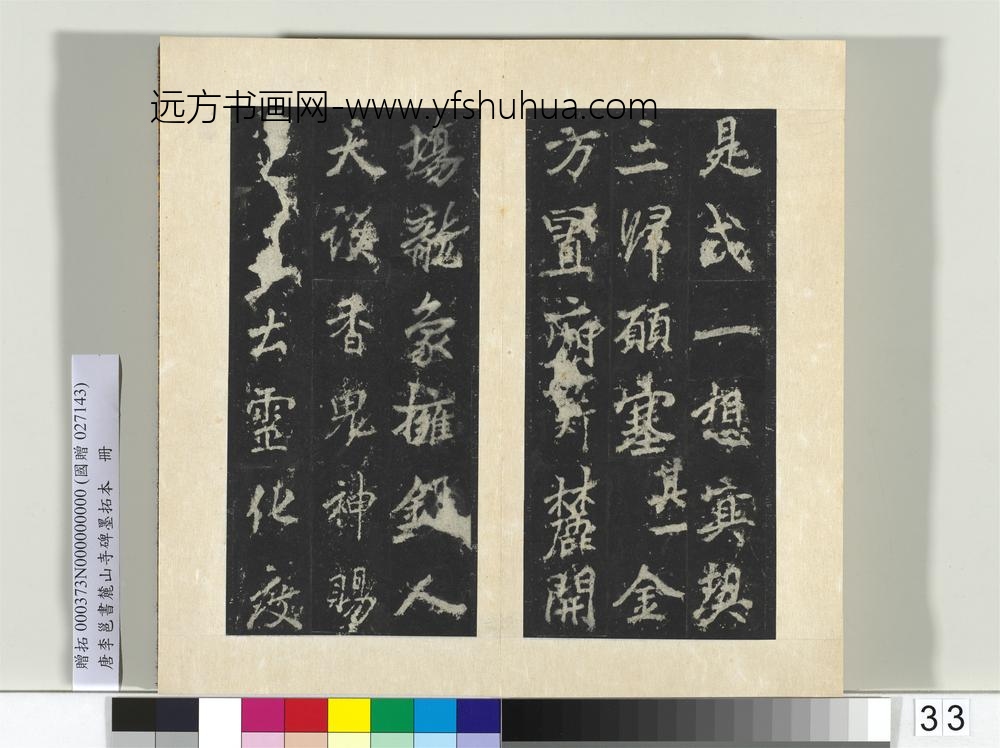 远方书画网-www.yfshuhua.com
是或一想冥契
三歸願塞其一金
方置開麓
場龍象擁錫人
天護香鬼神賜
古靈化度
贈拓 000373N000000000 (國贈 027143)
唐李邕書麓山寺碑墨拓本 冊
33